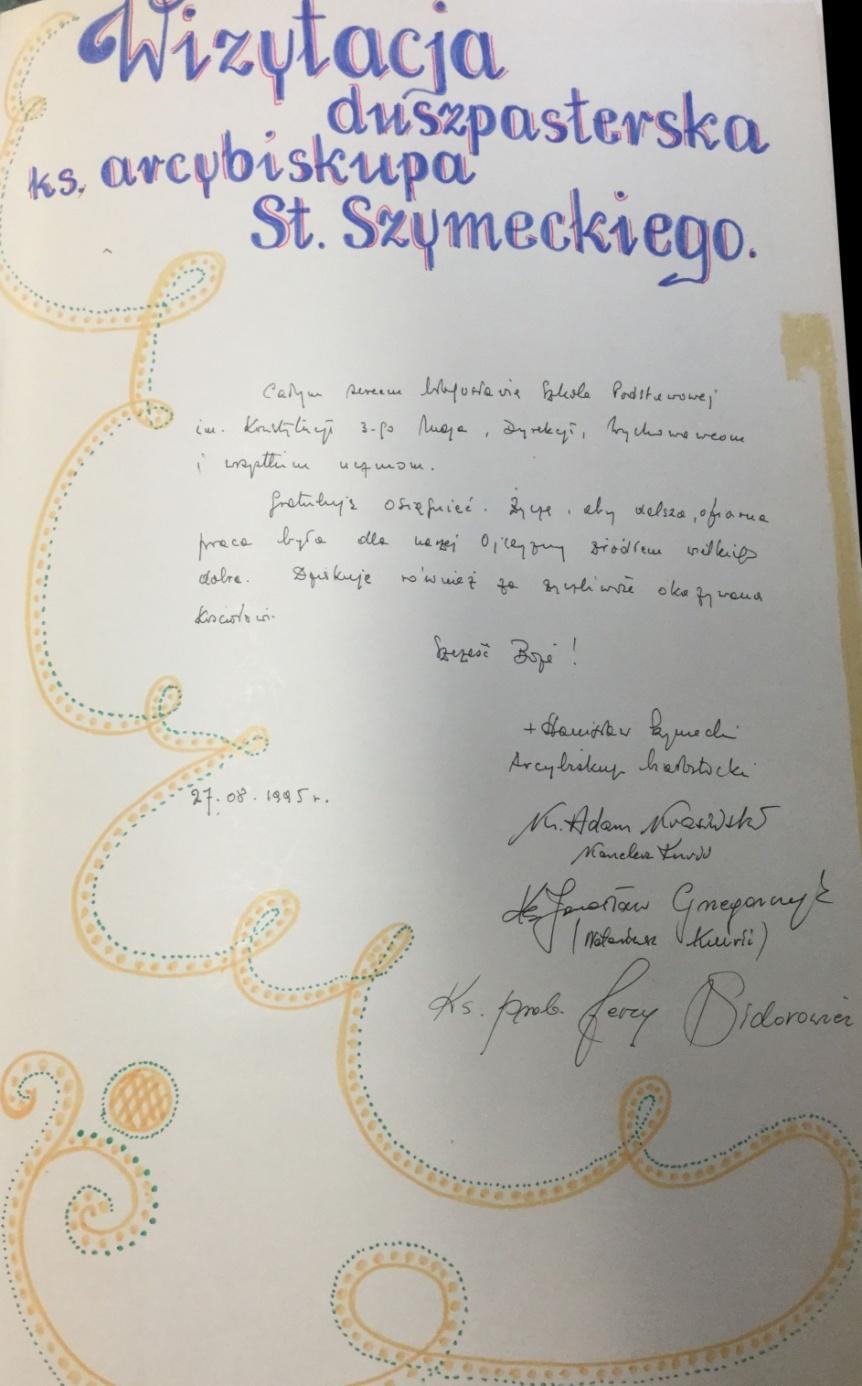 Wizytacja
duszpasterska
ks. arcybiskupa
St. Szymeckiego.
Całym sercem błogosławię Szkole Podstawowej
im. Konstytucji 3-go Maja, Dyrekcji, Wychowawcom
i wszystkim uczniom.
Gratuluję osiągnięć. Życzę, aby dalsza, ofiarna
praca była dla naszej Ojczyzny źródłem wielkiego
dobra. Dziękuję również za życzliwość okazywaną
Kościołowi.
Szczęść Boże!
+ Stanisław Szymecki
Arcybiskup białostocki
27.08.1995 r.
Ks. Adam Krasiński
Kanclerz Kurii
Ks. Jarosław Grzegorczyk
(Notariusz Kurii)
Ks. prob. Jerzy Sidorowicz